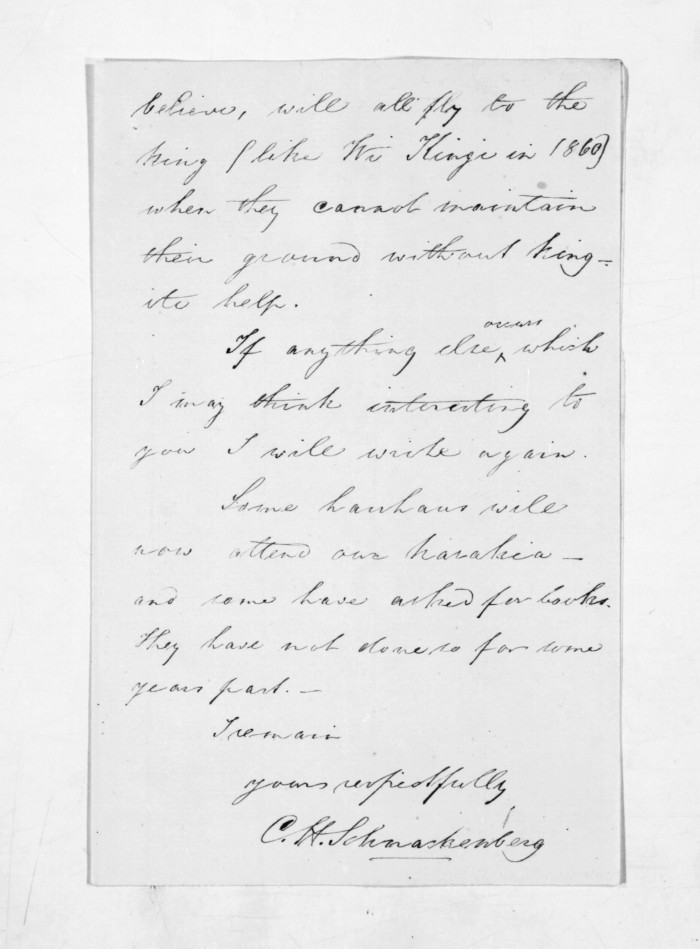 believe, will all fly to the
king (like Wi Kingi in 1860)
when they cannot maintain
their ground without king-
ite help.
If anything else occurs which
I may think interesting to
you I will write again.
Some hauhaus will
now attend our karakia –
and some have asked for books.
They have not done so for some
years past. –
I remain
yours respectfully
C. H. Schnackenberg